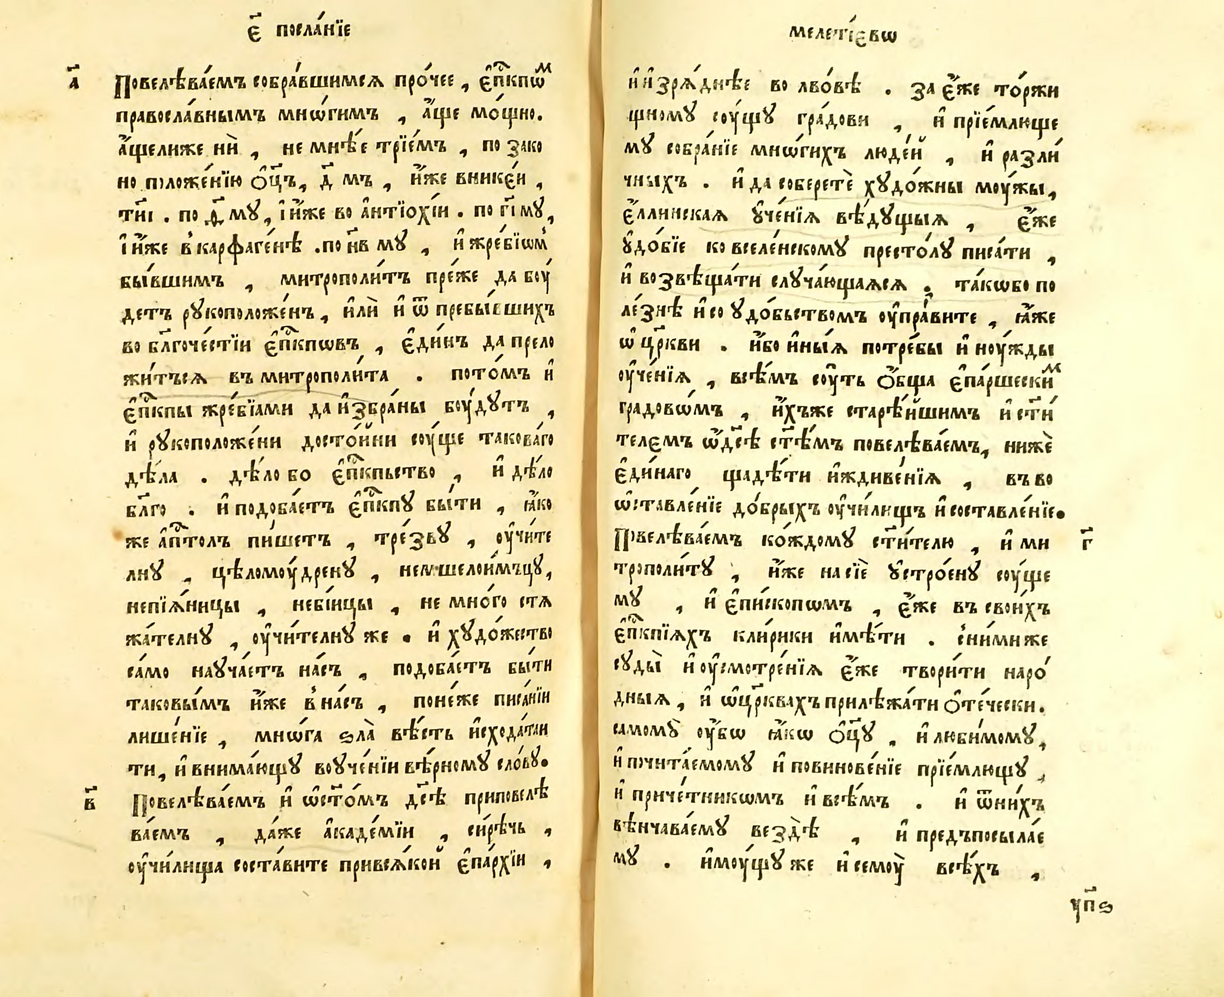 є҃ посла́нїе
а҃
Повелѣва́емъ собра́вшимсѧ про́чее , є҆пⷭ҇кпѡⷨ
правосла́внымъ мнѡ́гимъ , а҆́ще мо́щно.
а҆́щелиже нѝ , не мнѣ́е трїе́мъ , по зако
но положе́нїю ѻ҆ц҃ъ , д҃ мъ , и҆́же в никє́и ,
по г҃і му ,
і҆ и҆́же в̾ карфаге́нѣ . по и҃в му , и҆ жре́бїѡмъ
бы́вшимъ , митрополи́тъ пре́же да боу́
детъ рꙋкоположе́нъ , и҆лѝ и҆ ѿ пребы́вшихъ
во бл҃гоче́стїи є҆пⷭ҇кпѡвъ , є҆ди́нъ да прело
жи́тъсѧ въ митрополи́та . пото́мъ и҆
є҆пⷭ҇кпы жре́бїами да и҆збра́ны боу́дꙋтъ ,
и҆ рꙋкоположе́ни досто́йни соу́ще такова́го
дѣ́ла . дѣ́ло бо є҆пⷭ҇кпьство , и҆ дѣ́ло
бл҃го . и҆ подоба́етъ є҆пⷭ҇кпꙋ бы́ти , ꙗ҆́ко
же а҆пⷭ҇толъ пи́шетъ , тре́звꙋ , оу҆чи́те
лнꙋ , цѣломоу́дренꙋ , немшелои́мъцꙋ,
непїѧ́ницы , неби́йцы , не мно́го стѧ
жа́телнꙋ , оу҆чи́телнꙋ же . и҆ хꙋдо́жество
са́мо наꙋча́етъ на́съ , подоба́етъ бы́ти
таковы́мъ и҆́же в̾ на́съ , поне́же писа́нїи
лише́нїе , мнѡ́га ѕла̀ вѣ́сть и҆схода́таи
ти, и҆ внима́ющꙋ воуче́нїи вѣ́рномꙋ сло́вꙋ.
в҃
Повелѣва́емъ и҆ ѡ҆ст҃о́мъ дс҃ѣ приповелѣ
ва́емъ , да́же а҆каде́мїи , си́рѣчь ,
оу҆чи́лища соста́вите при всѧ́кой є҆па́рхїи ,
мелетїє́вѡ
и҆ и҆зрѧ́днѣе во льво́вѣ . за є҆́же то́ржи
щномꙋ соу́щꙋ гра́дови , и҆ прїе́млюще
мꙋ собра́нїе мнѡ́гихъ люде́й , и҆ разли́
чныхъ . и҆ да собере́те хꙋдо́жны моу́жы,
є҆́ллинскаѧ ᲂу҆че́нїѧ вѣ́дꙋщыѧ , є҆́же
ᲂу҆до́бїе ко вселе́нскомꙋ престо́лꙋ писа́ти ,
и҆ возвѣща́ти слꙋча́ющаѧсѧ . та́кѡбо по
ле́знѣ и҆ со ᲂу҆до́бьствомъ оу҆пра́вите , ꙗ҆́же
ѡ҆ цр҃кви . и҆́бо и҆ны́ѧ потре́бы и҆ ноу́жды
оу҆че́нїѧ , всѣ́мъ соу́ть ѻ҆́бща є҆па́ршескиⷨ
градовѡ́мъ , и҆́хъже старѣ́йшимъ и҆ ст҃и́
телемъ ѡ҆дс҃ѣ ст҃ѣ́мъ повелѣва́емъ, нижѐ
є҆ди́наго щадѣ́ти и҆ждиве́нїѧ , въ во
ѡ҆ставле́нїе до́брыхъ оу҆чи́лищъ и҆ составле́нїе.
г҃
Повелѣва́емъ ко́ждомꙋ ст҃и́телю , и҆ ми
трополи́тꙋ , и҆́же на сїѐ ᲂу҆стро́енꙋ соу́ще
мꙋ , и҆ є҆пи́скопѡмъ , є҆́же въ свои́хъ
є҆пⷭ҇кпїѧхъ кли́рики и҆мѣ́ти . с̾ ни́миже
сꙋды̀ и҆ оу҆смотре́нїѧ є҆́же твори́ти наро́
дныѧ , и҆ ѡ҆цр҃квахъ прилѣжа́ти ѻ҆те́чески.
самомꙋ̀ оу҆́бѡ ꙗ҆́кѡ ѻ҆ц҃ꙋ̀ , и҆ люби́момꙋ,
и҆ почита́емомꙋ и҆ повинове́нїе прїе́млющꙋ ,
и҆ приче́тникѡмъ и҆ всѣ́мъ . и҆ ѿ ни́хъ
вѣнчава́емꙋ вездѣ̀ , и҆ предъпосыла́е
мꙋ . и҆моу́щꙋ же и҆ семоу̀ всѣ́хъ ,
ѵп҃ѕ